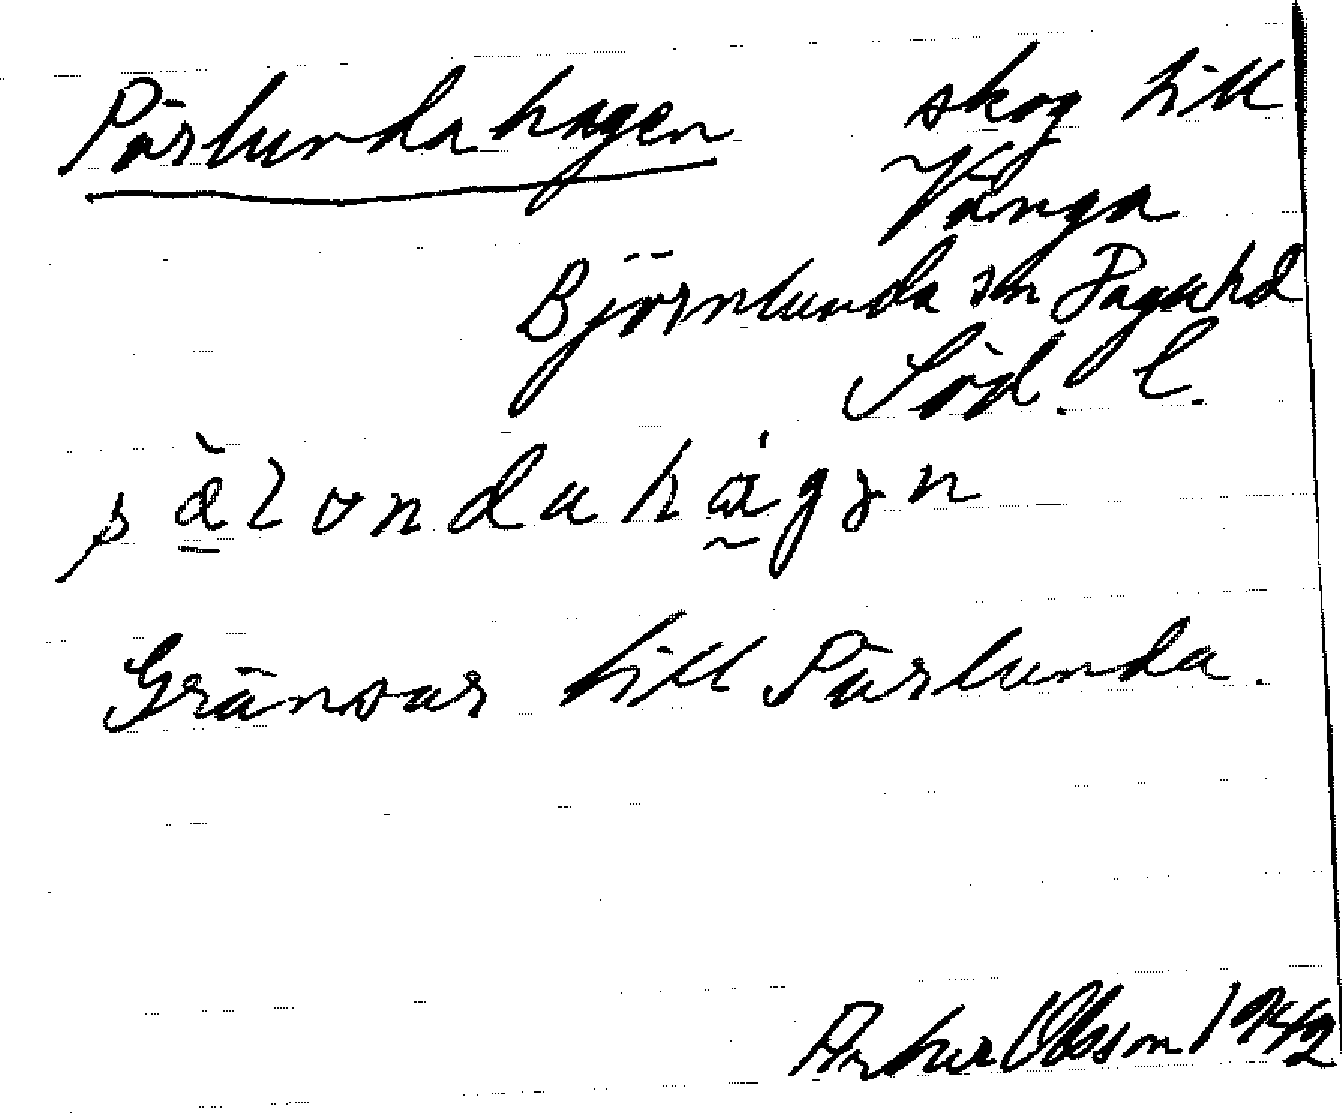 Pärlundahagen skog till
Vånga
Björnlunda sn Daga hd
Söd. l.
Gränsar till Pärlunda.
Arthur Olsson 1942